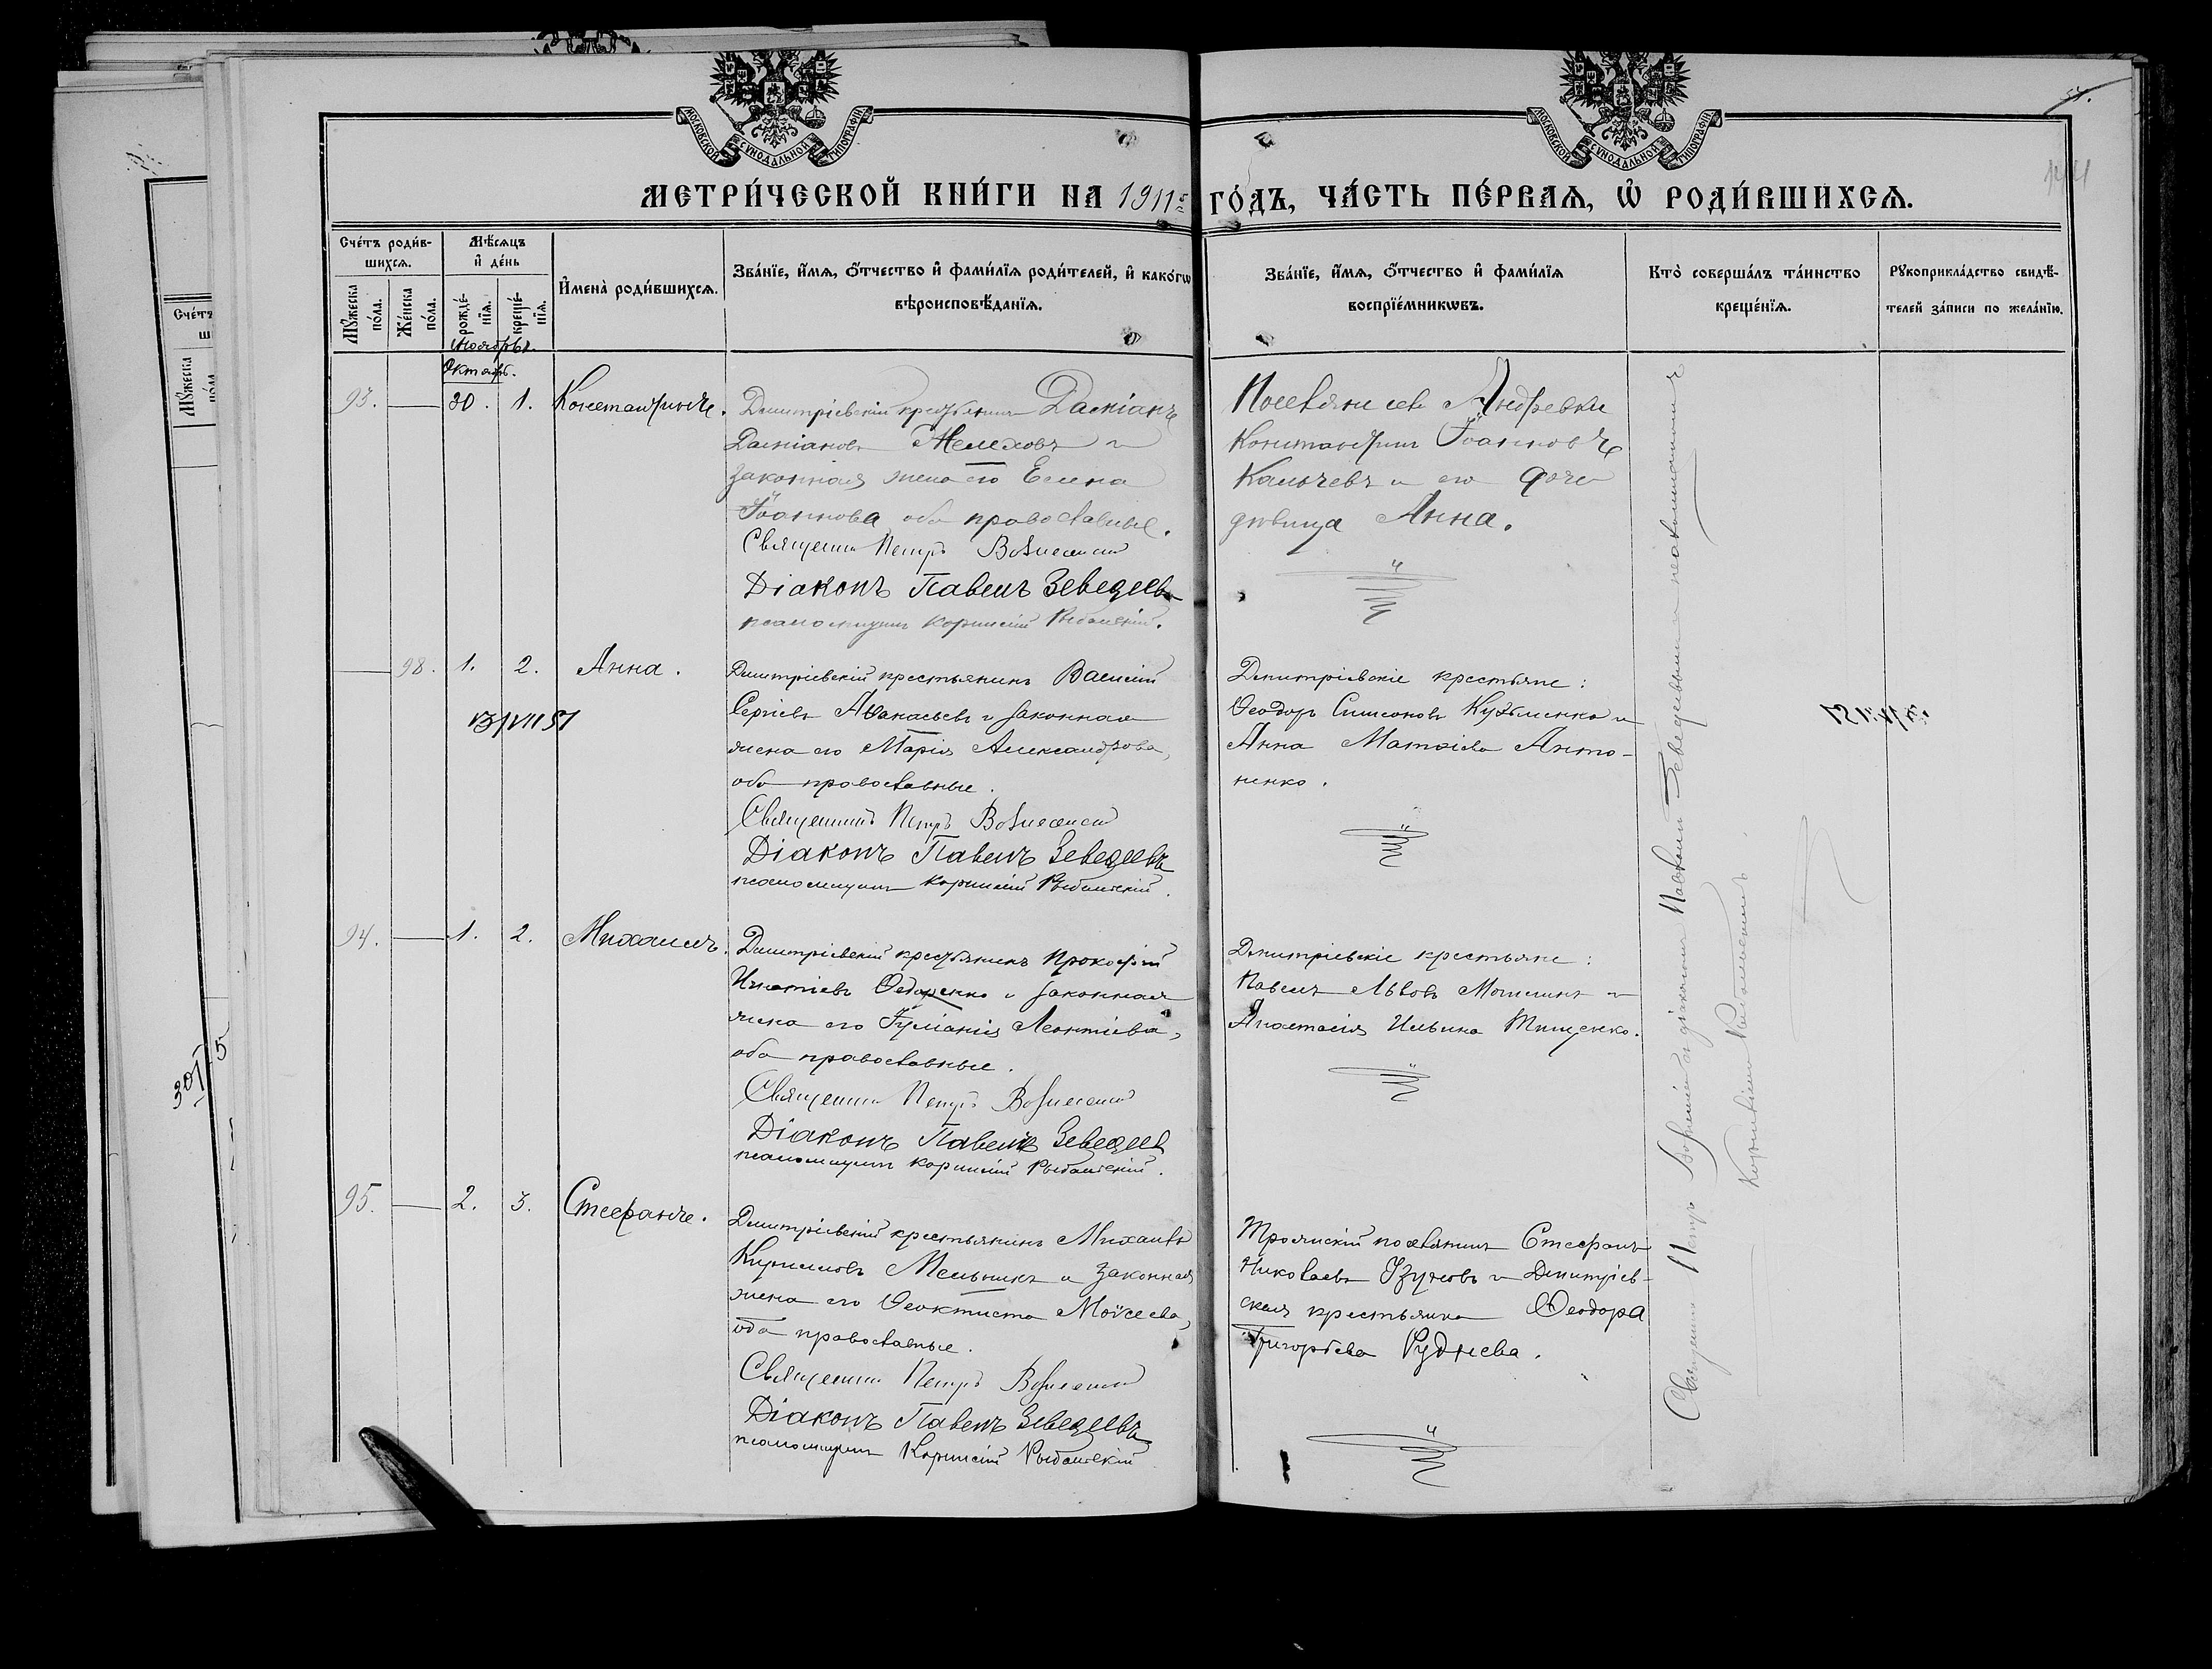 МОСКОВСКОЙ СѴНОДАЛЬНОЙ ТИПОГРАФІИ
МОСКОВСКОЙ СѴНОДАЛЬНОЙ ТИПОГРАФІИ
МЕТРИ́ЧЕСКОЙ КНИ́ГИ НА 1911 ГО́ДЪ, ЧА́СТЬ ПЕ́РВАѦ, Ѡ҆ РОДИ́ВШИХСѦ.
Сче́тъ роди́в-
шихсѧ.
Мꙋ́жеска
по́ла.
Же́нска
по́ла.
Мѣ́сѧцъ
и҆ де́нь
рожде́-
нїѧ.
креще́-
нїѧ.
И҆мена̀ роди́вшихсѧ.
Зва́нїе, и҆́мѧ, ѻ҆́тчество и҆ фами́лїѧ роди́телей, и҆ како́гѡ
вѣроисповѣ́данїѧ.
Зва́нїе, и҆́мѧ, ѻ҆́тчество и҆ фами́лїѧ
воспрїе́мникѡвъ.
Кто̀ соверша́лъ та́инство
креще́нїѧ.
Рꙋкоприкла́дство свидѣ́-
телей за́писи по жела́нїю.
Ноябрь.
Октябрь.
93. 30. 1. Константинъ.
Димитріевскій крестьянинъ Даміанъ
Даміановъ Мелеховъ и
законная жена его Елена
Іоаннова, оба православные.
Священникъ Петръ Вознесенскій
Діаконъ Павелъ Зеведеевъ
псаломщикъ Корнилій Рыбальскій.
Поселянинъ села Андреевки
Константинъ Іоанновъ
Кальчевъ и его дочь
дѣвица Анна.
98. 1. 2. Анна.
13/VII 51
Димитріевскій крестьянинъ Василій
Сергіевъ Аѳанасьевъ и законная
жена его Марія Александрова,
оба православные.
Священникъ Петръ Вознесенскій
Діаконъ Павелъ Зеведеевъ
псаломщикъ Корнилій Рыбальскій.
Димитріевскіе крестьяне:
Ѳеодоръ Симеоновъ Кузьменко и
Анна Матѳіева Анто-
ненко.
94. 1. 2. Михаилъ.
Димитріевскій крестьянинъ Прокофій
Игнатіевъ Федоренко и законная
жена его Іуліанія Леонтіева,
оба православные.
Священникъ Петръ Вознесенскій
Діаконъ Павелъ Зеведеевъ
псаломщикъ Корнилій Рыбальскій.
Димитріевскіе крестьяне:
Павелъ Львовъ Мошлинъ и
Анастасія Ильина Тищенко.
95. 2. 3. Стефанъ.
Димитріевскій крестьянинъ Михаилъ
Кирилловъ Мельникъ и законная
жена его Ѳеоктиста Моисеева,
оба православные.
Священникъ Петръ Вознесенскій
Діаконъ Павелъ Зеведеевъ
псаломщикъ Корнилій Рыбальскій
Троянскій поселянинъ Стефанъ
Николаевъ Узуновъ и Димитріев-
ская крестьянка Ѳеодора
Григорьева Руднева.
Священникъ Петръ Вознесенскій съ діакономъ Павломъ Зеведеевымъ и псаломщикомъ
Корниліемъ Рыбальскимъ